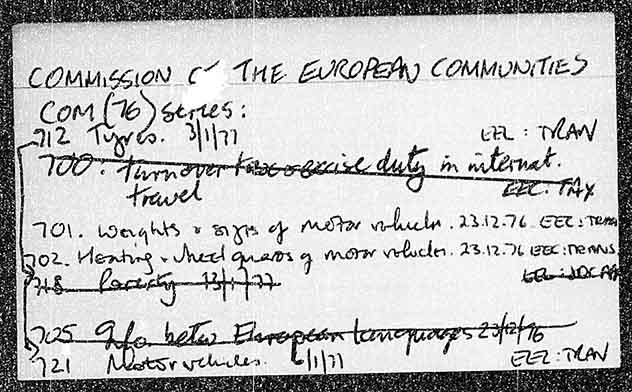 COMMISSION OF THE EUROPEAN COMMUNITIES
COM (76) series:
712 Tyres. 3/1/77 EEC: TRAN
700. turnover tax & excise duty in internat.
travel EEC: TAX
701. Weights & sizes of motor vehicles. 23.12.76. EEC: TRANS
702. Heating & wheel guards of motor vehicles. 23.12.76 EEC: TRANS.
718 Poverty 13/1/77 EEC:
705 Info betw European languages 23/12/76
721 Motor vehicles. 6/1/77 EEC: TRAN